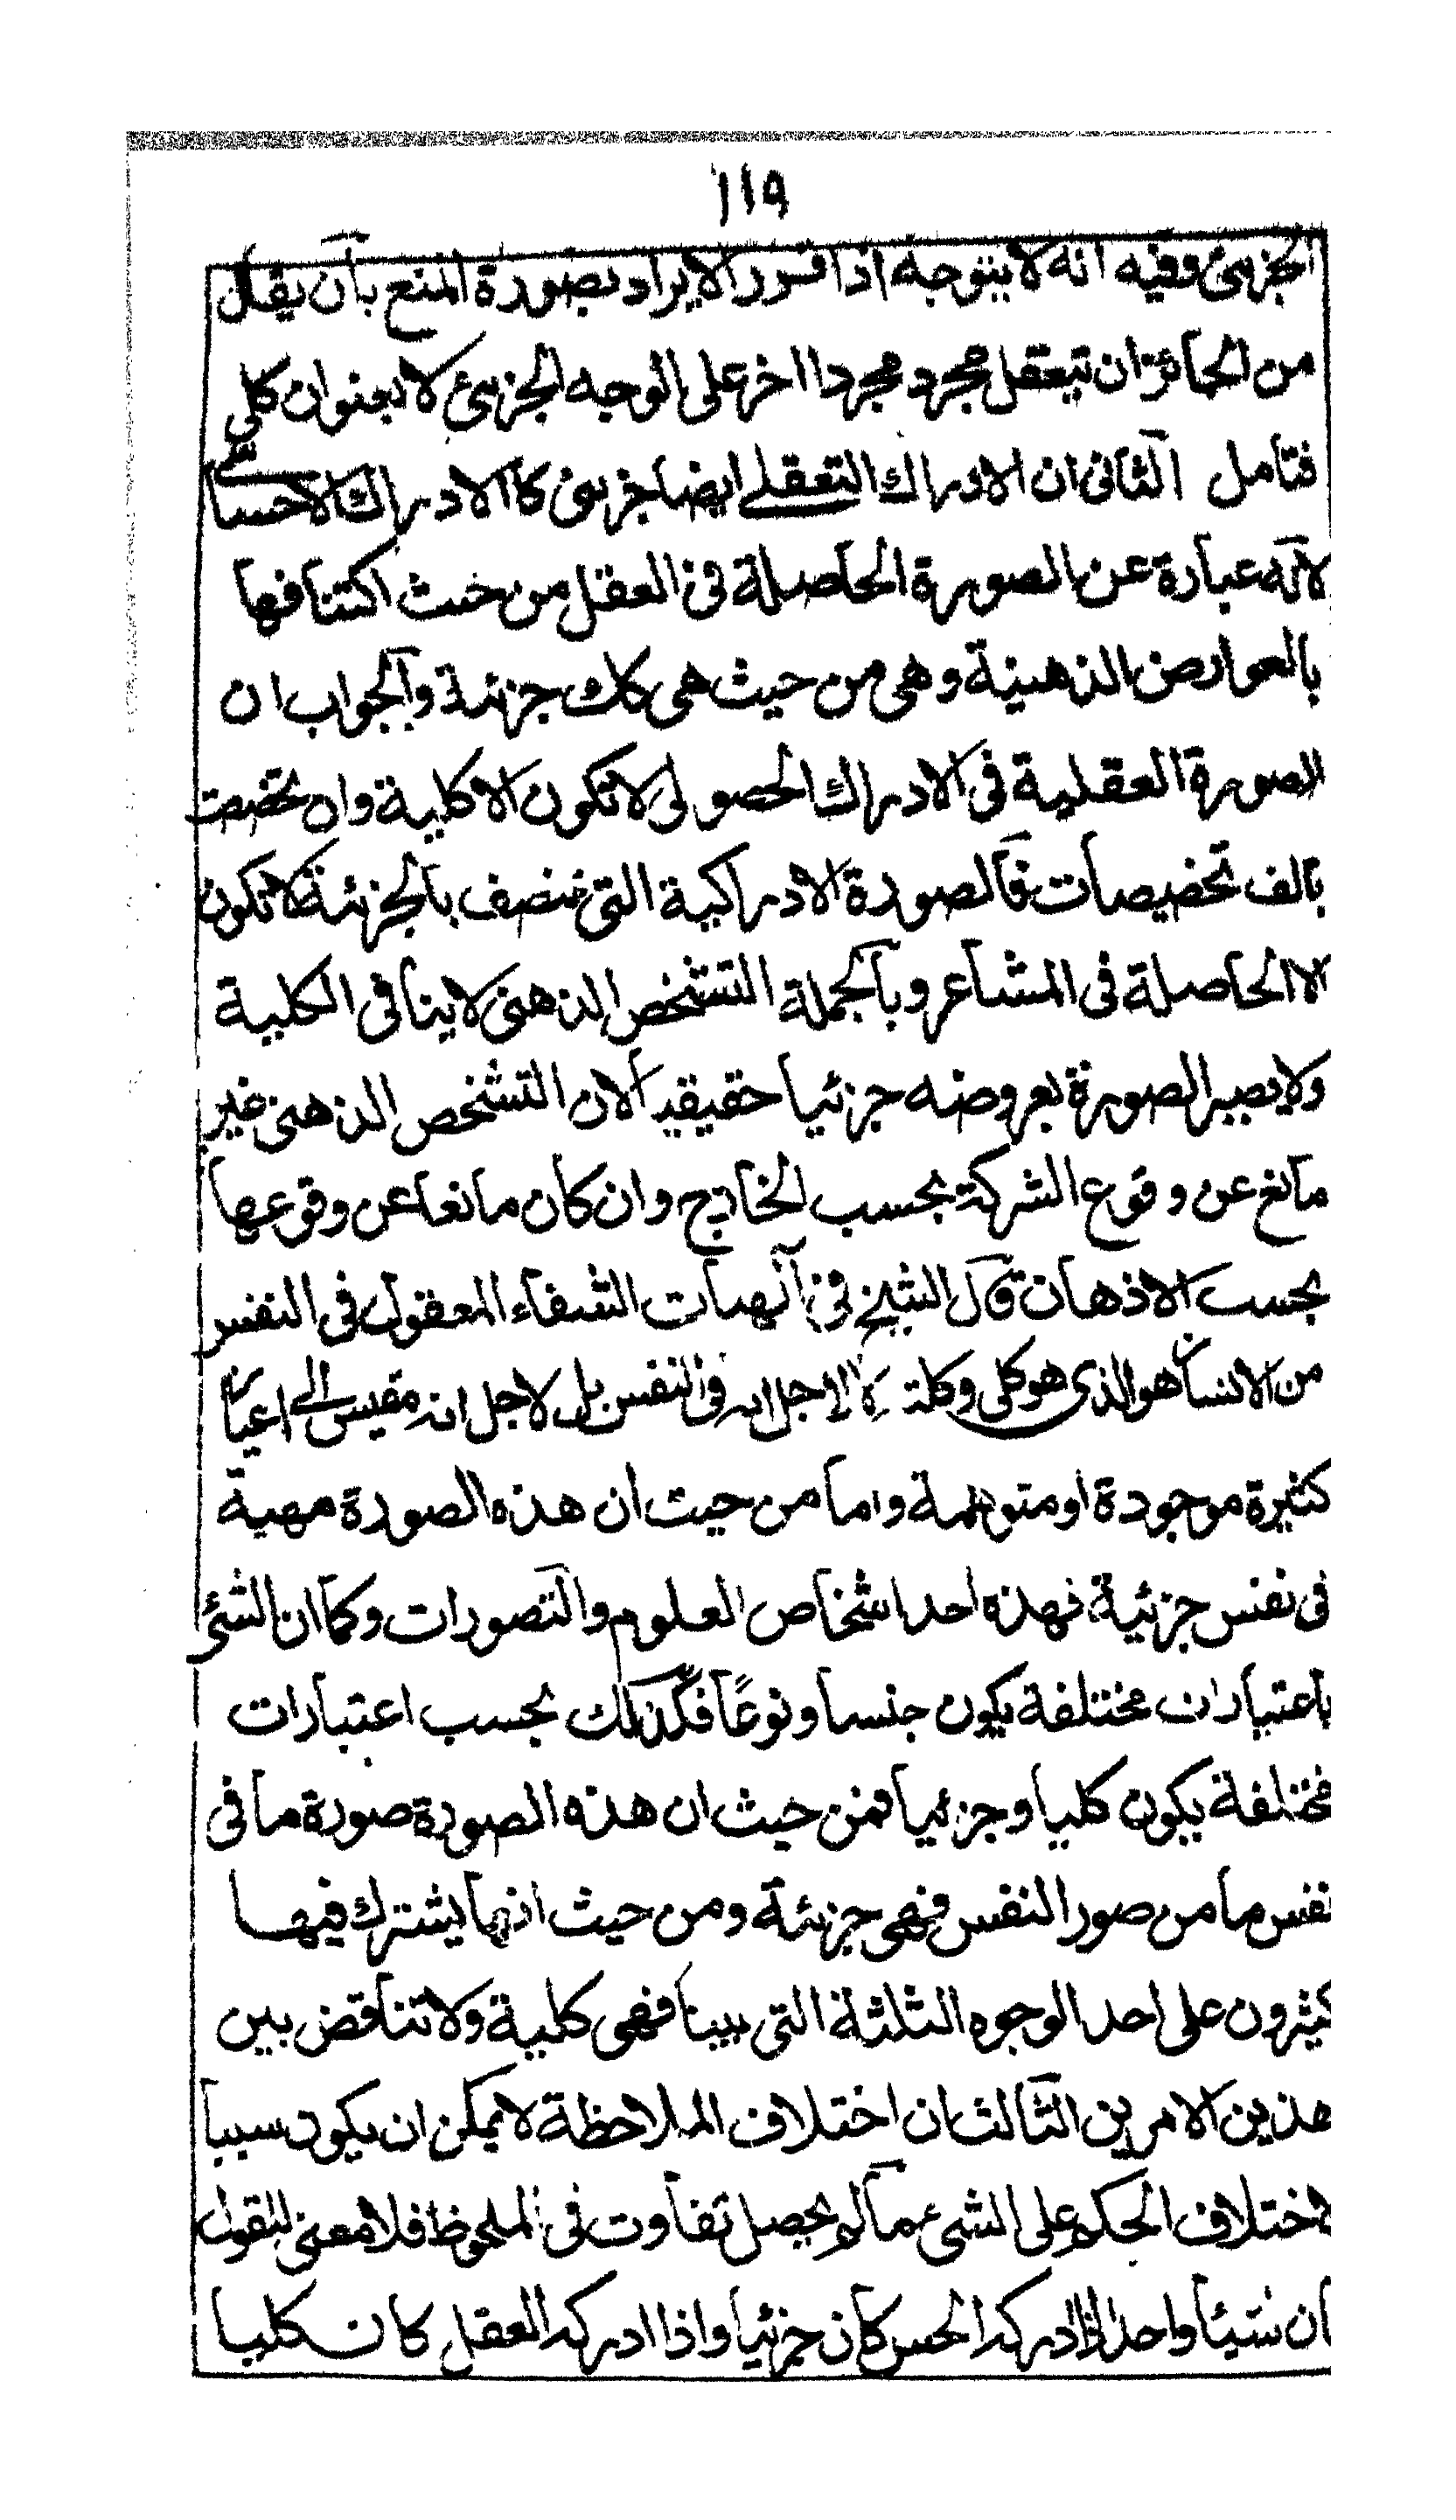 ١١٩
الجزئ وفيه انه لا يتوجه اذا قرر الايراد بصورة المنع بان يقال
من الجائز ان يتعقل مجرد مجردا اخر على الوجه الجزئ لا بعنوان كلى
فتامل الثانى ان الادراك التعقلے ايضا جزئ كالادراك الاحساسے
لانه عبارة عن الصورة الحاصلة فى العقل من حيث اكتنافها
بالعوارض الذهنية وهى من حيث هى كك جزئة والجواب ان
الصورة العقلية فى الادراك الحصولى لا تكون الا كلية وان تخصصت
بالف تخصيصات فالصورة الادراكية التى تتصف بالجزئة لا تكون
الا الحاصلة فى المشاعر وبالجملة التشخص الذهنى لا ينافى الكلية
ولا يصير الصورة بعروضه جزئيا حقيقيا لان التشخص الذهنى غير
مانع عن وقوع الشركة بحسب الخارج وان كان مانعا عن وقوعها
بحسب الاذهان قال الشيخ فى الٰهيات الشفاء المعقول فى النفس
من الانسان هو الذى هو كلى وكلته لا لاجل انه فى النفس بل لاجل انه مقيس الى اعيان
كثيرة موجودة او متوهمة واما من حيث ان هذه الصورة مهية
فى نفس جزئية فهذه احد اشخاص العلوم والتصورات وكما ان الشئ
باعتبارات مختلفة يكون جنسا ونوعًا فكذلك بحسب اعتبارات
مختلفة يكون كليا وجزئيا فمن حيث ان هذه الصورة صورة ما فى
نفس ما من صور النفس فهى جزئة ومن حيث انها يشترك فيها
كثيرون على احد الوجوه الثلثة التى بينا فهى كلية ولا تناقض بين
هذين الامرين الثالث ان اختلاف الملاحظة لا يمكن ان يكون سببا
لاختلاف الحكم على الشى مالم يحصل تفاوت فى الملحوظ فلا معنى للقول
بان شيئا واحدا اذا ادركه الحس كان جزئيا واذا ادركه العقل كان كليا